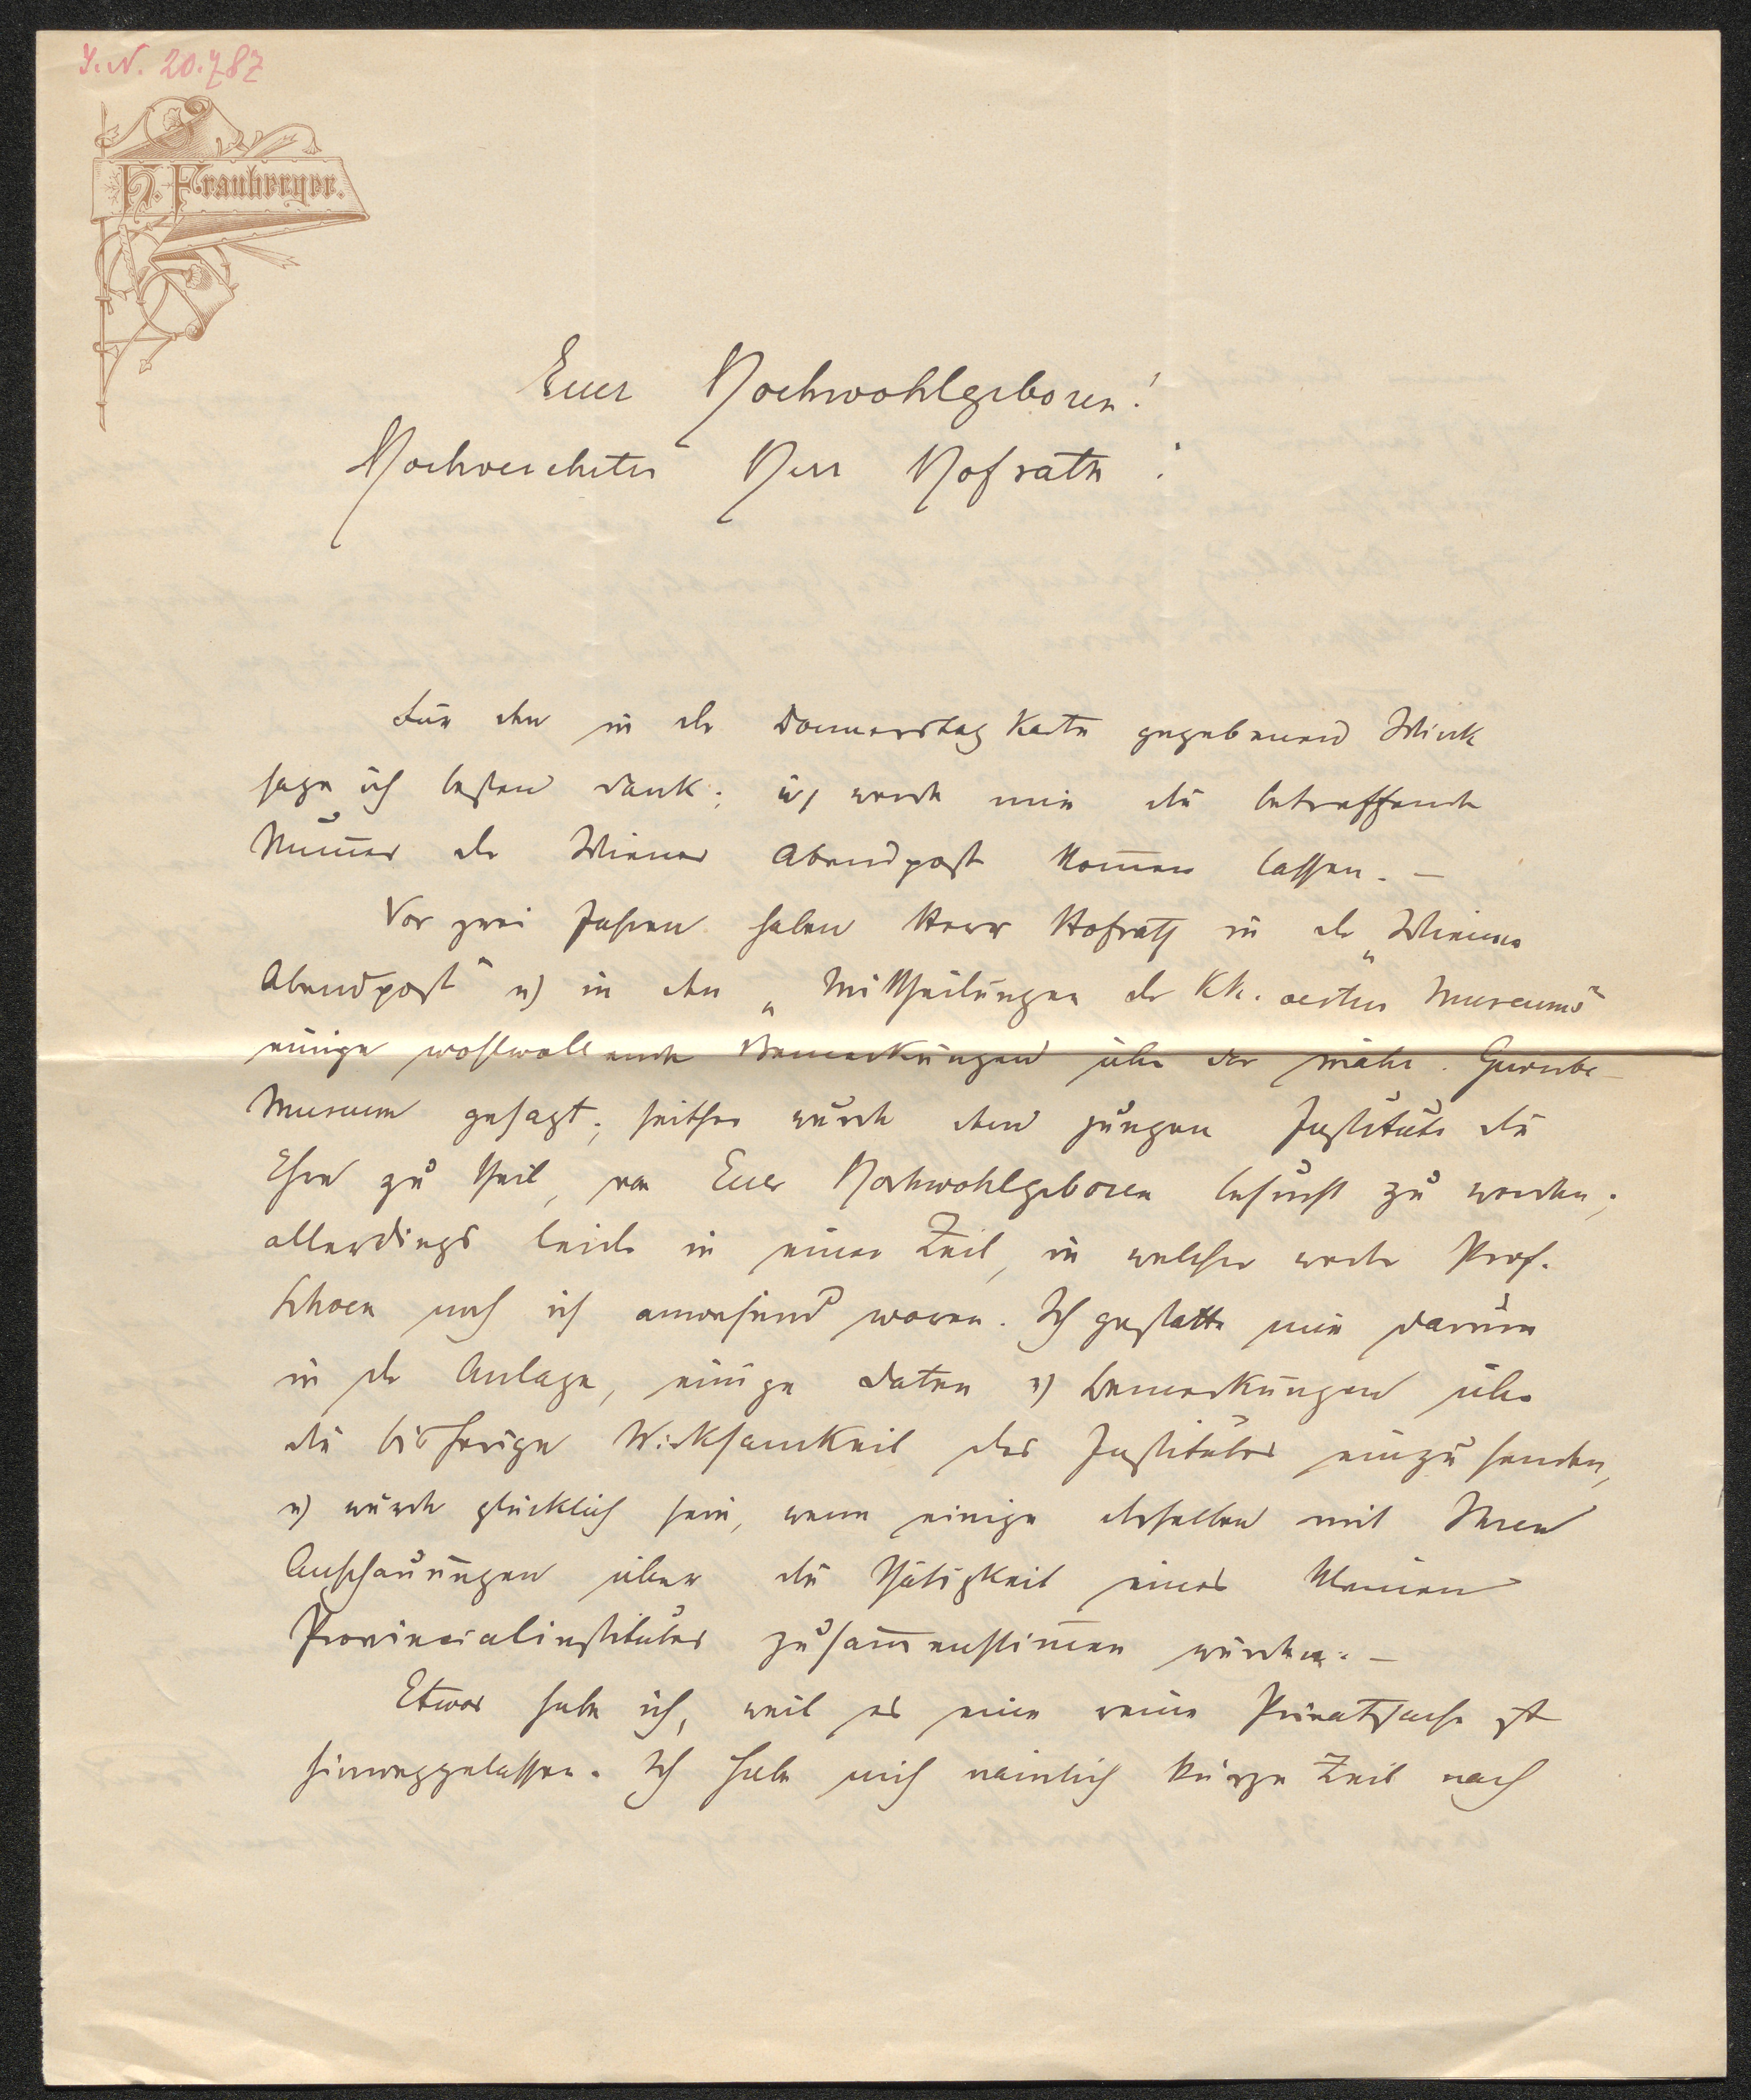 I. N. 20.787
H. Frauberger.
Euer Hochwohlgeboren!
Hochverehrter Herr Hofrath!
Für den in der Donnerstag Karte gegebenen Wink
sage ich besten Dank; ich werde mir die betreffende
Num̄er der Wiener Abendpost kom̄en lassen. —
Vor zwei Jahren haben Herr Hofrath in der „Wiener
Abendpost" u) in den „Mittheilungen des k.k. oester Museums"
einige wohlwollende Bemerkungen über das mähr. Gewerbe-
Museum gesagt; seither wurde dem jungen Institute die
Ehre zu theil, von Euer Hochwohlgeboren besucht zu werden;
allerdings leider in einer Zeit, in welcher weder Prof.
Schoen noch ich anwesend waren. Ich gestatte mir darum
in der Anlage, einige Daten u) Bemerkungen über
die bisherige Wirksamkeit des Institutes einzusenden,
u) würde glücklich sein, wenn einige derselben mit Ihren
Anschauungen über die Thätigkeit eines kleinen
Provincialinstitutes zusam̄enstim̄en würden. —
Etwas habe ich, weil es eine reine Privatsache ist
hinweggelassen. Ich habe mich nämlich kurze Zeit nach